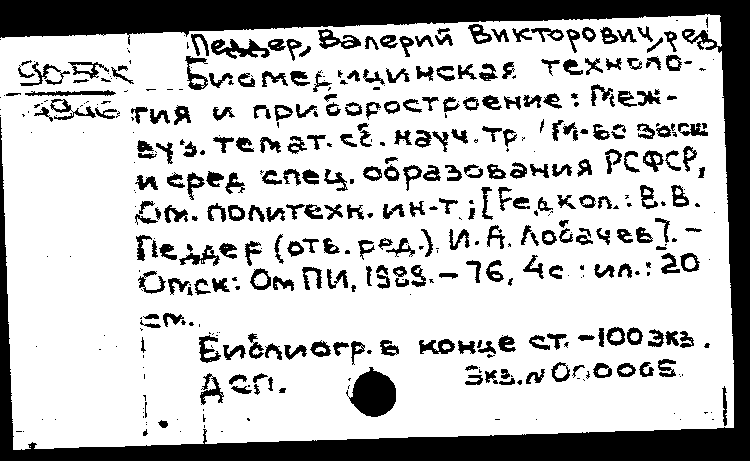 Педдер, Валерий Викторович, ред.
90-5
Биомедицинская техноло-
гия и приборостроение: Меж-
вуз. темат. сб. науч. тр. / М-во высш
и сред спец. образования РСФСР,
Ом. политехн. ин-т; [Редкол.: В.В.
Педдер (отв. ред.), И.А. Лобачев]. -
Омск: ОмПИ, 1989. - 76, 4с : ил.: 20
см.
Библиогр. в конце ст. - 100 экз.
ДСП.
Экз. N 000005